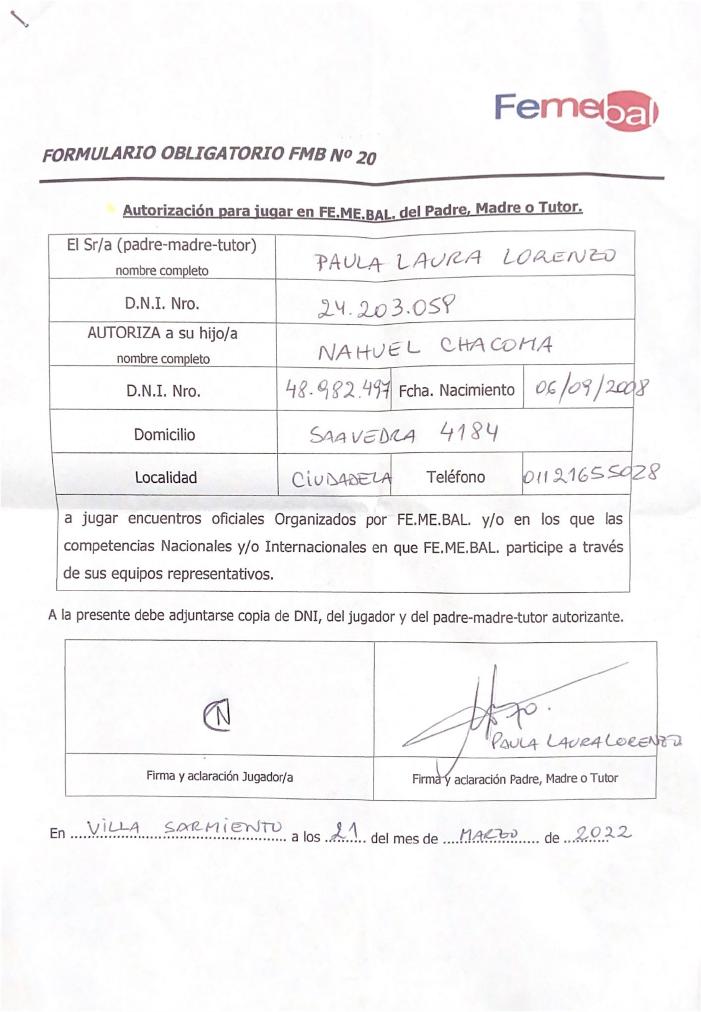 Femebal
FORMULARIO OBLIGATORIO FMB Nº 20
Autorización para jugar en FE.ME.BAL. del Padre, Madre o Tutor.
El Sr/a (padre-madre-tutor)
nombre completo
PAULA LAURA LORENZO
D.N.I. Nro.
24.203.058
AUTORIZA a su hijo/a
nombre completo
NAHUEL CHACOMA
D.N.I. Nro.
48.982.497
Fcha. Nacimiento
06/09/2008
Domicilio
SAAVEDRA 4184
Localidad
CIUDADELA
Teléfono
01121655028
a jugar encuentros oficiales Organizados por FE.ME.BAL. y/o en los que las
competencias Nacionales y/o Internacionales en que FE.ME.BAL. participe a través
de sus equipos representativos.
A la presente debe adjuntarse copia de DNI, del jugador y del padre-madre-tutor autorizante.
PAULA LAURA LORENZO
Firma y aclaración Jugador/a
Firma y aclaración Padre, Madre o Tutor
En VILLA SARMIENTO a los 21 del mes de MARZO de 2022